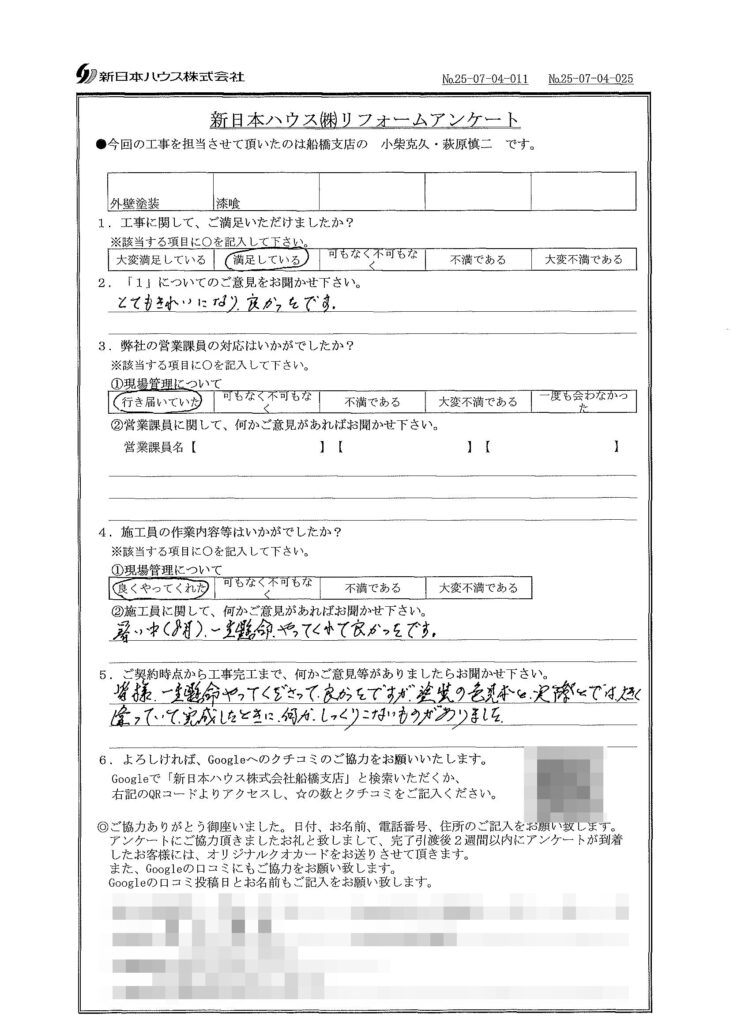 新日本ハウス株式会社 №25-07-04-011 №25-07-04-025
新日本ハウス㈱リフォームアンケート
●今回の工事を担当させて頂いたのは船橋支店の 小柴克久・萩原慎二 です。
外壁塗装 漆喰
1．工事に関して、ご満足いただけましたか？
※該当する項目に○を記入して下さい。
大変満足している 満足している 可もなく不可もなく 不満である 大変不満である
2．「1」についてのご意見をお聞かせ下さい。
とてもきれいになり、良かったです。
3．弊社の営業課員の対応はいかがでしたか？
※該当する項目に○を記入して下さい。
①現場管理について
行き届いていた 可もなく不可もなく 不満である 大変不満である 一度も会わなかった
②営業課員に関して、何かご意見があればお聞かせ下さい。
営業課員名【 】【 】【 】
4．施工員の作業内容等はいかがでしたか？
※該当する項目に○を記入して下さい。
①現場管理について
良くやってくれた 可もなく不可もなく 不満である 大変不満である
②施工員に関して、何かご意見があればお聞かせ下さい。
暑い中(8月)、一生懸命、やってくれて良かったです。
5．ご契約時点から工事完工まで、何かご意見等がありましたらお聞かせ下さい。
皆様、一生懸命やってくださって、良かったですが、塗装の色見本と、実際とでは大きく
違っていて、完成したときに、何か、しっくりこないものがありました。
6．よろしければ、Googleへのクチコミのご協力をお願いいたします。
Googleで「新日本ハウス株式会社船橋支店」と検索いただくか、
右記のQRコードよりアクセスし、☆の数とクチコミをご記入ください。
◎ご協力ありがとう御座いました。日付、お名前、電話番号、住所のご記入をお願い致します。
アンケートにご協力頂きましたお礼と致しまして、完了引渡後２週間以内にアンケートが到着
したお客様には、オリジナルクオカードをお送りさせて頂きます。
また、Googleの口コミにもご協力をお願い致します。
Googleの口コミ投稿日とお名前もご記入をお願い致します。